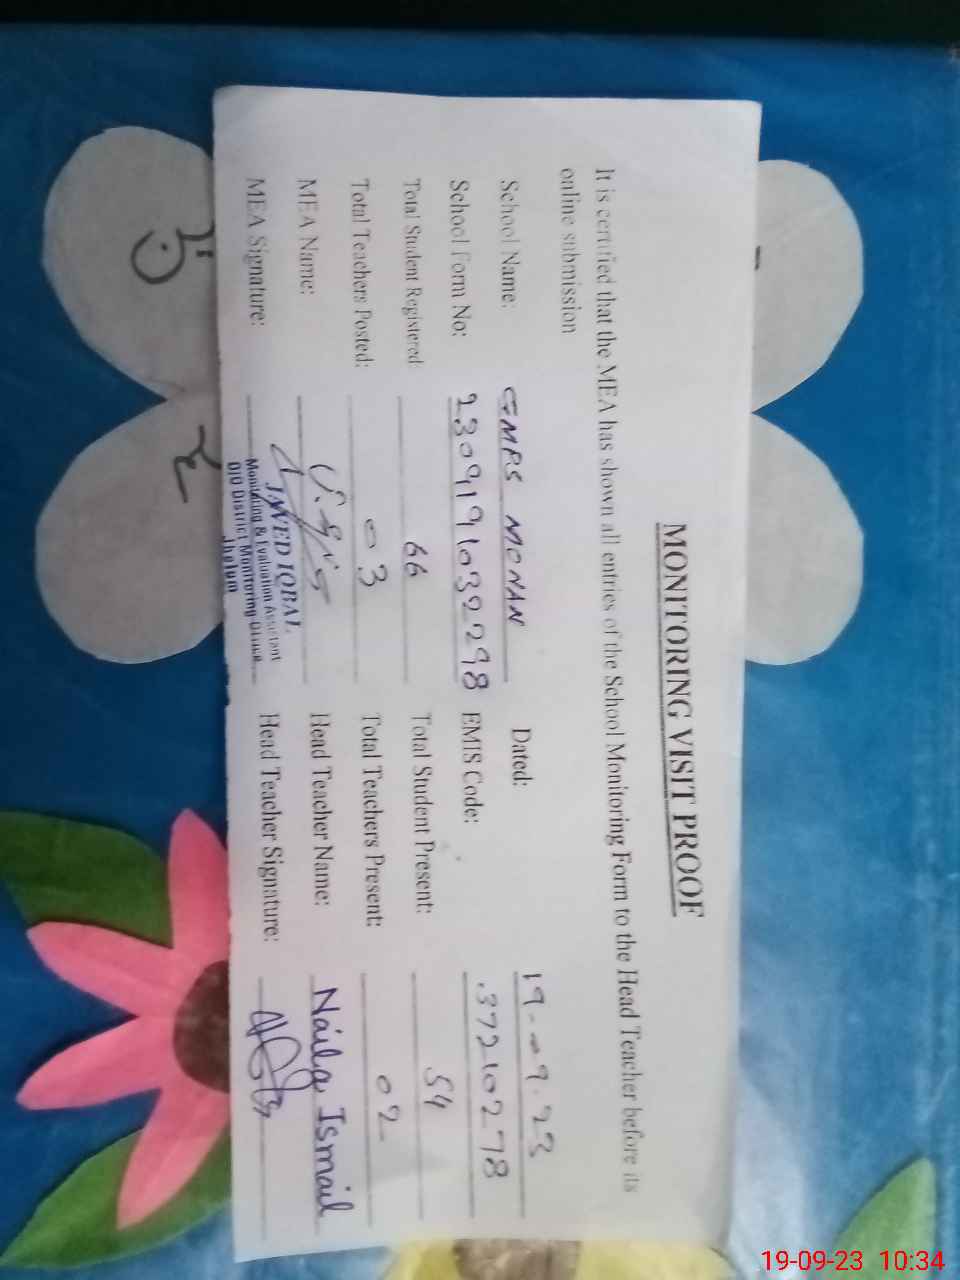 MONITORING VISIT PROOF
It is certified that the MEA has shown all entries of the School Monitoring Form to the Head Teacher before its
online submission
School Name: GMPS MONAN Dated: 19-09-23
School Form No: 2309191032298 EMIS Code: 37210278
Total Student Registered: 66 Total Student Present: 54
Total Teachers Posted: 03 Total Teachers Present: 02
MEA Name: Head Teacher Name: Naila Ismail
MEA Signature: Head Teacher Signature:
JAVED IQBAL
Monitoring & Evaluation Assistant
O/O District Monitoring Office
Jhelum
19-09-23 10:34